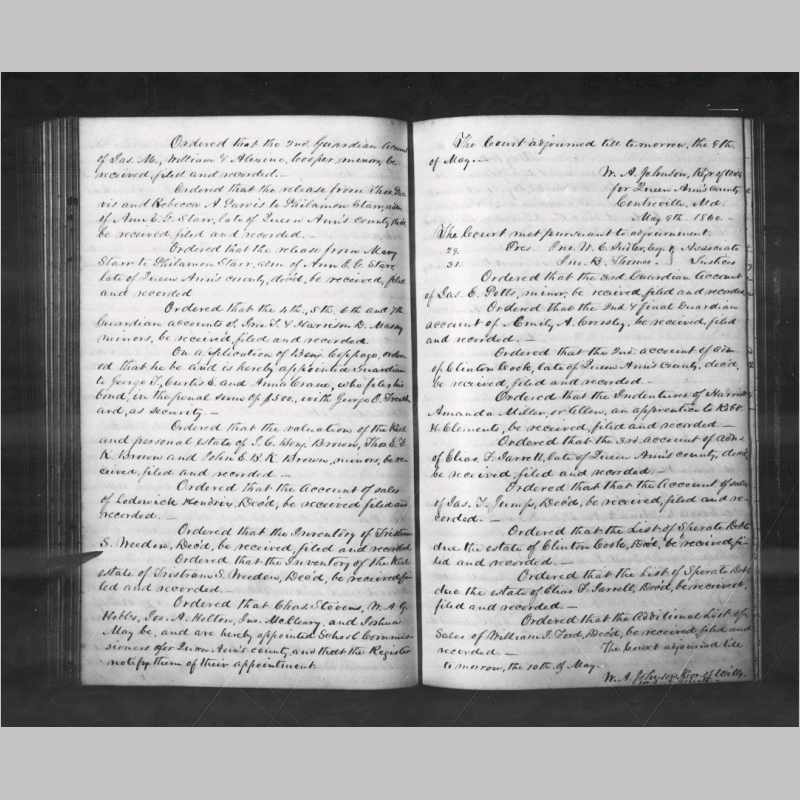 Ordered that the 2nd. Guardian account
of Jas. M., William & Alexine, Cooper, minors, be
received, filed and recorded. —
Ordered that the release from
and Rebecca A. Jarvis to Philamon Starr, adm.
of Ann E. G. Starr, late of Queen Ann's county, dec'd,
be received, filed and recorded. —
Ordered that the release from Mary
Starr to Philamon Starr, adm of Ann E. G. Starr,
late of Queen Ann's county, dec'd, be received, filed
and recorded
Ordered that the 4th., 5th, 6th and 7th
Guardian accounts of Jno. T. & Harrison D. Massey
minors, be receiv'd, filed and recorded.
On application of Benj. Coppage, order-
ed that he be and is hereby appointed Guardian
to George T., Curtis E. and Anna Crane, who files his
bond, in the penal sum of $500., with George O.
ard, as security. —
Ordered that the valuation of the Real
and personal estate of J. C. Brown, Thos. E. D.
K. Brown and John E. B. K. Brown, minors, be re-
ceived, filed and recorded —
Ordered that the Account of sales
of Lodewick Kendrix, Dec'd, be received filed and
recorded. —
Ordered that the Inventory of Tristram
S. Weedon, Dec'd, be received, filed and recorded
Ordered that the Inventory of the Real
estate of Tristram S. Weedon, Dec'd, be received, fi-
led and recorded. —
Ordered that Chas. Stevens, W. A. G.
Nobles, Jos. A. Holton, Jas. McCleary, and Joshua
May be, and are hereby appointed School Commis-
sioners for Queen Ann's county, and that the Register
notify them of their appointment
The Court adjourned till tomorrow, the 9th.
of May. —
W. A. Johnson, Regr of Wills
for Queen Ann's County
Centreville, Md.
May 9th. 1860. —
The Court met pursuant to adjournment.
29. Pres. Jno. W. C. Sudler, Esq. } Associate
31. Jno. B. Thomas. } Justices
Ordered that the 3rd. Guardian Account
of Jas. E. Potts, minor, be received, filed and recorded
Ordered that the 2nd. & final Guardian
account of Emily A. Crossley, be received, filed
and recorded. —
Ordered that the 2nd. account of adm
of Clinton Cook, late of Queen Ann's county, dec'd,
be received, filed and recorded. —
Ordered that the Indentures of Harriet
Amanda Miller, or Ellen, an apprentice to Robt.
H. Clements, be received, filed and recorded —
Ordered that the 3rd. account of adm
of Elias T. Jarrell, late of Queen Ann's county, dec'd,
be received, filed and recorded. —
Ordered that that the Account of sales
of Jas. T. Jump, Dec'd, be received, filed and re-
corded. —
Ordered that the List of Sperate Debts
due the estate of Clinton Cook, Dec'd, be received, fi-
led and recorded. —
Ordered that the List of Sperate Debts
due the estate of Elias T. Jarrell, Dec'd, be received,
filed and recorded —
Ordered that the Additional List of
Sales of William J. Ford, Dec'd, be received, filed and
recorded — The Court adjourned till
tomorrow, the 10th. of May.
W. A. Johnson Regr. of Wills.